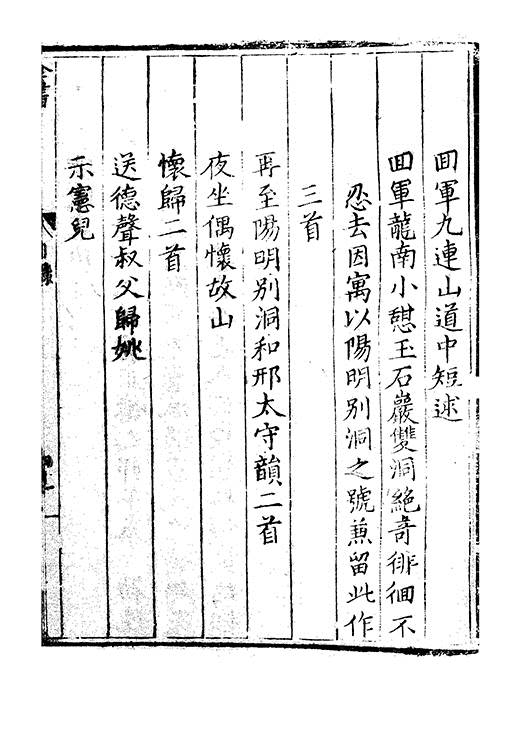 回軍九連山道中短述
回軍龍南小憇玉石巖雙洞絶竒徘徊不
忍去因寓以陽明別洞之號兼留此作
三首
再至陽明別洞和邢太守韻二首
夜坐偶懷故山
懷歸二首
送德聲叔父歸姚
示憲兒